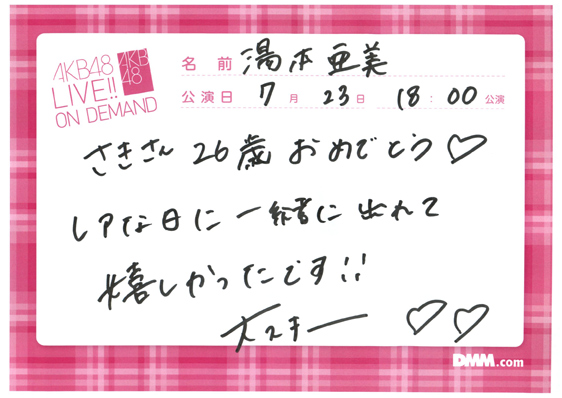 AKB48
LIVE!!
ON DEMAND
AKB
48
名 前 湯本亜美
公演日 7月 23日 18:00 公演
さきさん 26歳 おめでとう♡
レアな日に一緒に出れて
嬉しかったです!!
大スキー ♡♡
DMM.com